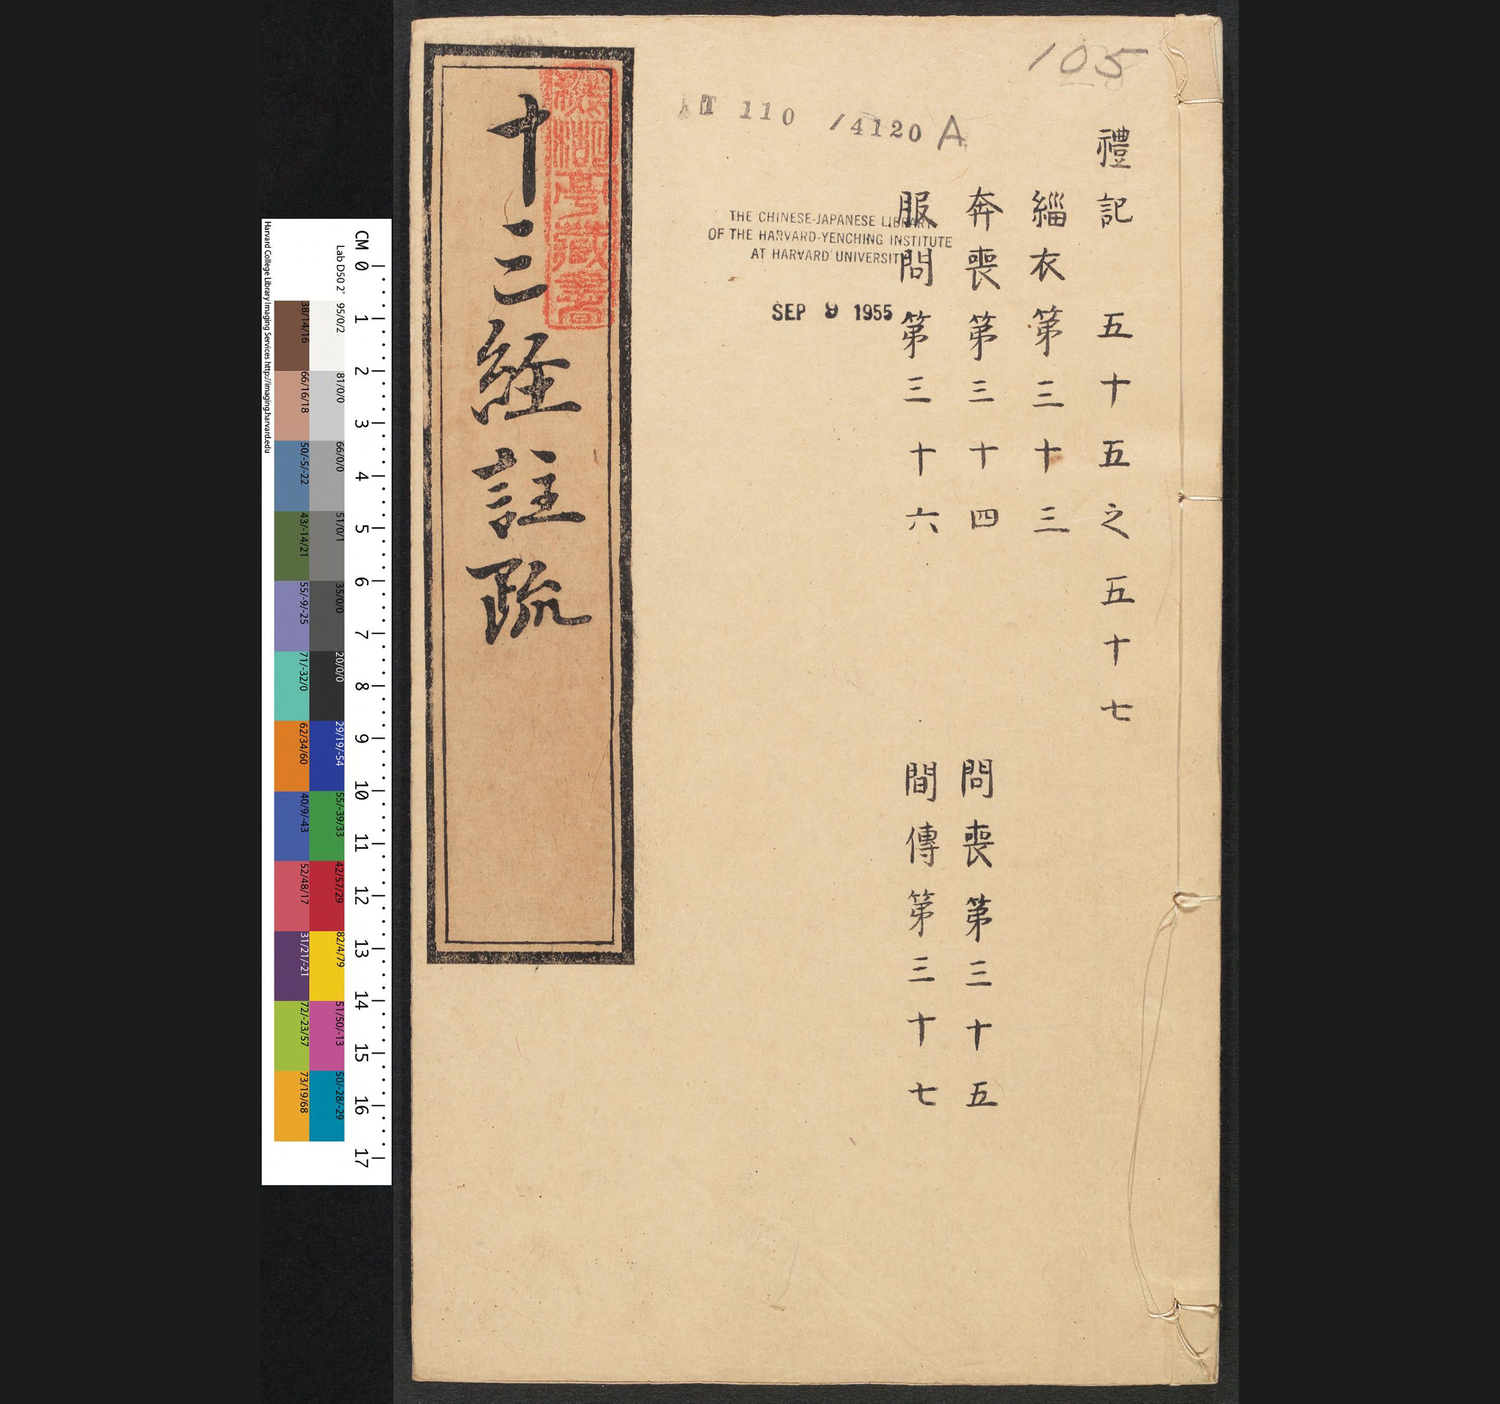 105
禮記 五十五之五十七
緇衣第三十三
奔喪第三十四 問喪第三十五
服問第三十六 間傳第三十七
T 110 /4120 A
THE CHINESE-JAPANESE LIBRARY
OF THE HARVARD-YENCHING INSTITUTE
AT HARVARD UNIVERSITY
SEP 9 1955
十三經註疏
藏書
CM 0 1 2 3 4 5 6 7 8 9 10 11 12 13 14 15 16 17
Lab D50 2° 95/0/2 81/0/0 66/0/0 51/0/1 35/0/0 20/0/0 29/19/-54 55/-39/33 42/57/29 82/4/79 51/50/-13 50/-28/-29
38/14/16 66/16/18 50/-5/-22 43/-14/21 55/-9/-25 71/-32/0 62/34/60 40/9/-43 52/48/17 31/21/-21 72/-23/57 73/19/68
Harvard College Library Imaging Services http://imaging.harvard.edu